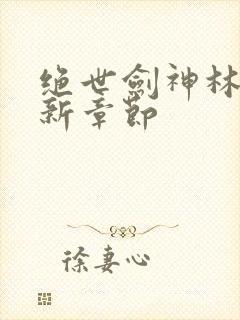 绝世劍神林
新章節
徐妻心